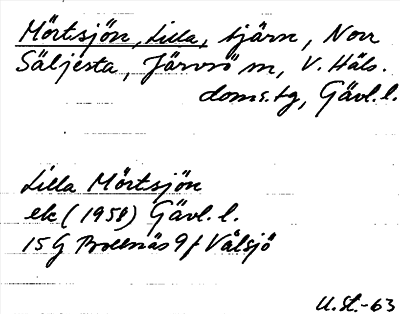 Mörtsjön, Lilla, tjärn, Norr
Säljesta, Järvsö sn, V. Häls.
doms.tg, Gävl.l.
Lilla Mörtsjön
ek (1958) Gävl. l.
15G Bollnäs 9f Vålsjö
U.St.-63